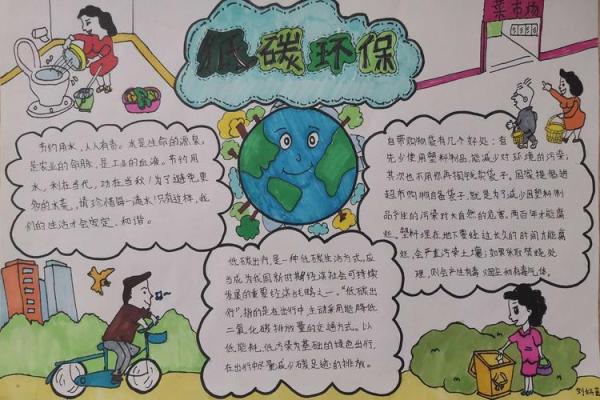 低碳环保
菜市场
节约用水，人人有责。水是生命的源泉，
是农业的命脉，是工业的血液。节约用
水，利在当代，功在千秋！为了避免更
多的水荒，请珍惜每一滴水！只有这样，我
们的生活才会安定、和谐。
自带购物袋有几个好处：首
先少使用塑料制品，能减少对环境的污染，
其次也不用你再掏钱买袋子。国家提倡逛
超市购物自备袋子，就是为了减少因塑料制
品产生的污染对大自然的危害。两百年才能腐
烂。塑料埋在地下要经过长久的时间才能腐
烂，会产重污染土壤；如果采取焚烧处
理，则会产生有毒烟尘和有毒气体。
低碳出行，是一种低碳生活方式，应
当成为我国新时期经济社会可持续
发展的重要经济战略之一。“低碳出
行”，指的是在出行中，主动采用能降低
二氧化碳排放量的交通方式。以
低能耗、低污染为基础的绿色出行，
在出行中尽量减少碳足迹的排放。